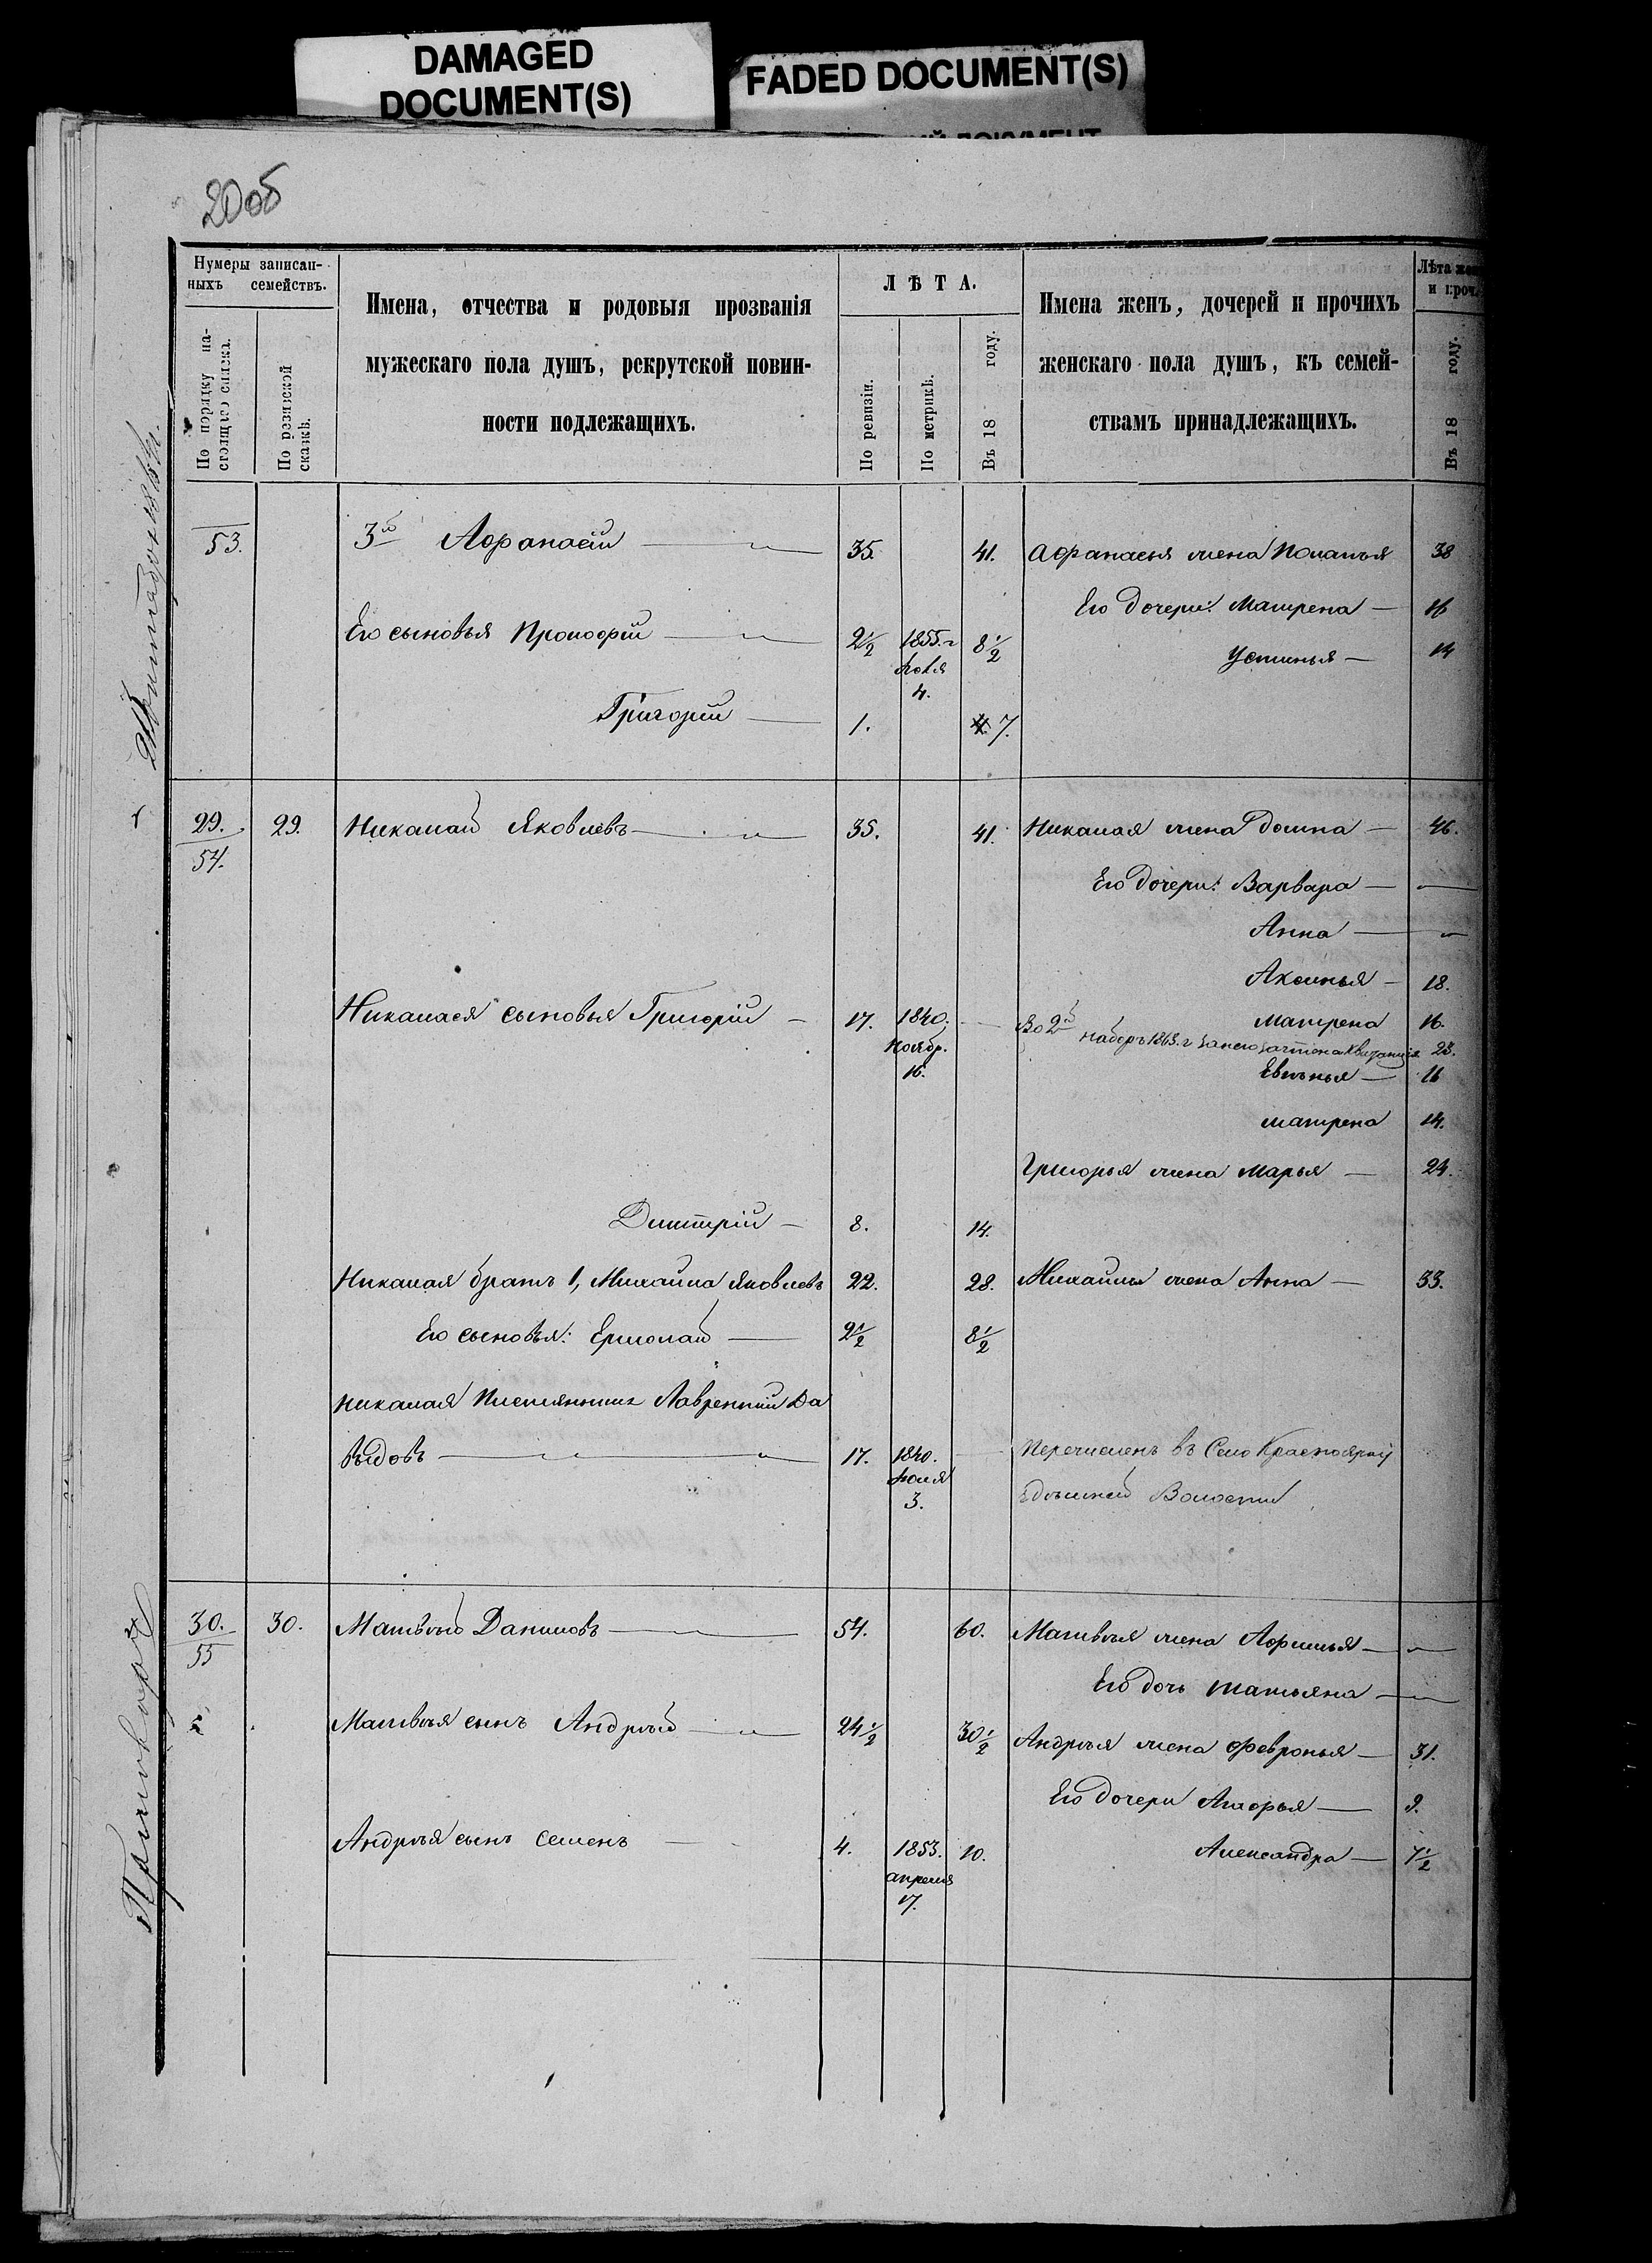 DAMAGED
DOCUMENT(S)
FADED DOCUMENT(S)
20об
Нумеры записан-
ныхъ семействъ.
По порядку на-
стоящаго списка.
По ревизской
сказкѣ.
Имена, отчества и родовыя прозванія
мужескаго пола душъ, рекрутской повин-
ности подлежащихъ.
ЛѢТА.
По ревизіи.
По метрикѣ.
Въ 18 году.
Имена женъ, дочерей и прочихъ
женскаго пола душъ, къ семей-
ствамъ принадлежащихъ.
Лѣта жен
и проч.
Въ 18 году.
53. 3й Афонасій — „ — 35. 41. Афанасья жена Поланья 38
Его дочери: Матрена — 16
Его сыновья Прокофій — „ — 2½ 1855. г 8½
Устинья — 14
4.
Григорій — 1. 7.
29. 29. Николай Яковлевъ — „ — 35. 41. Николая жена Домна — 46.
54.
Его дочери: Варвара — „ —
Анна — „
Аксинья — 18.
Николая сыновья Григорій — 17. 1840. Матрена 16.
Ноябр.
16.
Во 2й наборъ 1863. г за него зачтена квитанція 23.
Евгѣнья — 11
матрена 14.
Григорья жена Марья — 24.
Дмитрій — 8. 14.
Николая братъ 1, Михайла Яковлевъ 22. 28. Михайлы жена Анна — 33.
Его сыновья: Ермолай — 2½ 8½
Николая Племянникъ Лаврентій Да
выдовъ — „ — „ 17. 1840. Перечисленъ въ Село Красноярской
Іюля
3.
Волости
30. 30. Матвѣй Даниловъ — 54. 60. Матвѣя жена Афимья — „
55
Его дочь татьяна — „
Матвѣя сынъ Андрѣй — „ — 24½ 30½ Андрѣя жена Февронья — 31.
Его дочери — 9.
Андрѣя сынъ Семенъ 4. 1853. 10. Александра — 7½
апреля
17.